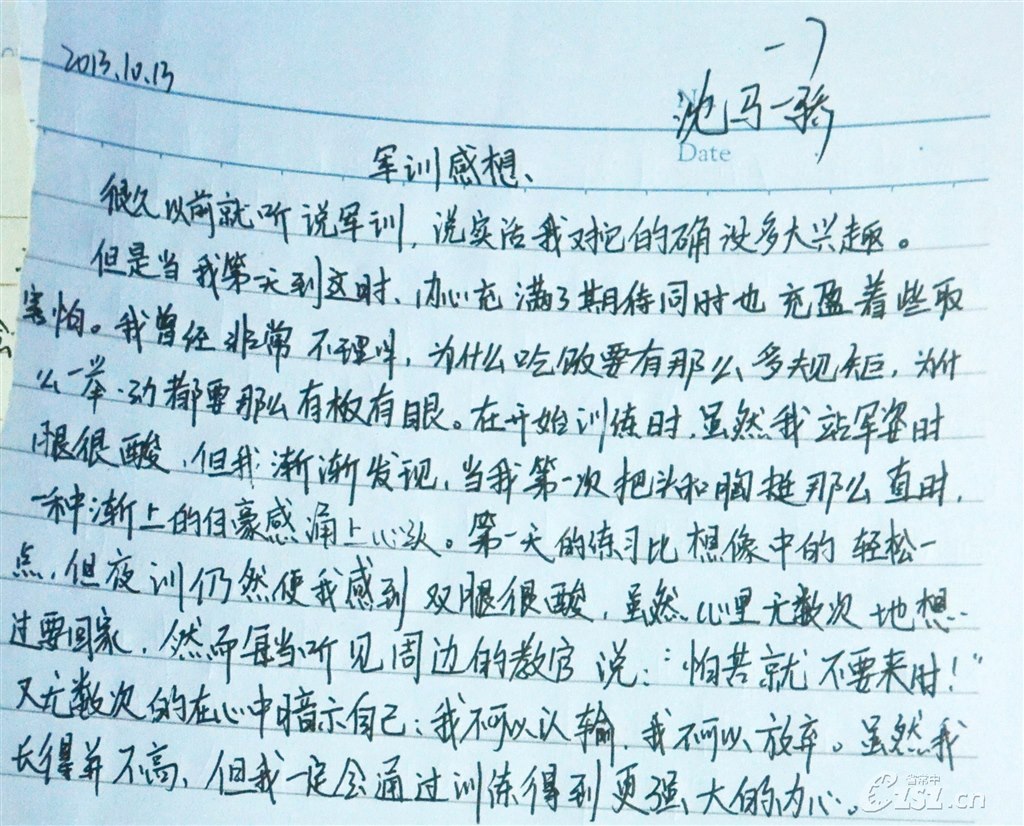 一7
2013.10.13
沈马一骄
Date
军训感想、
很久以前就听说军训，说实话我对它的确没多大兴趣。
但是当我第一天到这时、内心充满了期待同时也充盈着些取
害怕。我曾经非常不理解，为什么吃饭要有那么多规矩，为什
么一举一动都要那么有板有眼。在开始训练时，虽然我站军姿时
腿很酸，但我渐渐发现，当我第一次把头和胸挺那么直时，
一种渐上的自豪感涌上心头。第一天的练习比想像中的轻松一
点，但夜训仍然使我感到双腿很酸，虽然心里无数次地想
过要回家，然而每当听见周边的教官说：“怕苦就不要来时！”
又无数次的在心中暗示自己：我不可以认输，我不可以放弃。虽然我
长得并不高，但我一定会通过训练得到更强大的内心。
省常中
1S1.cn